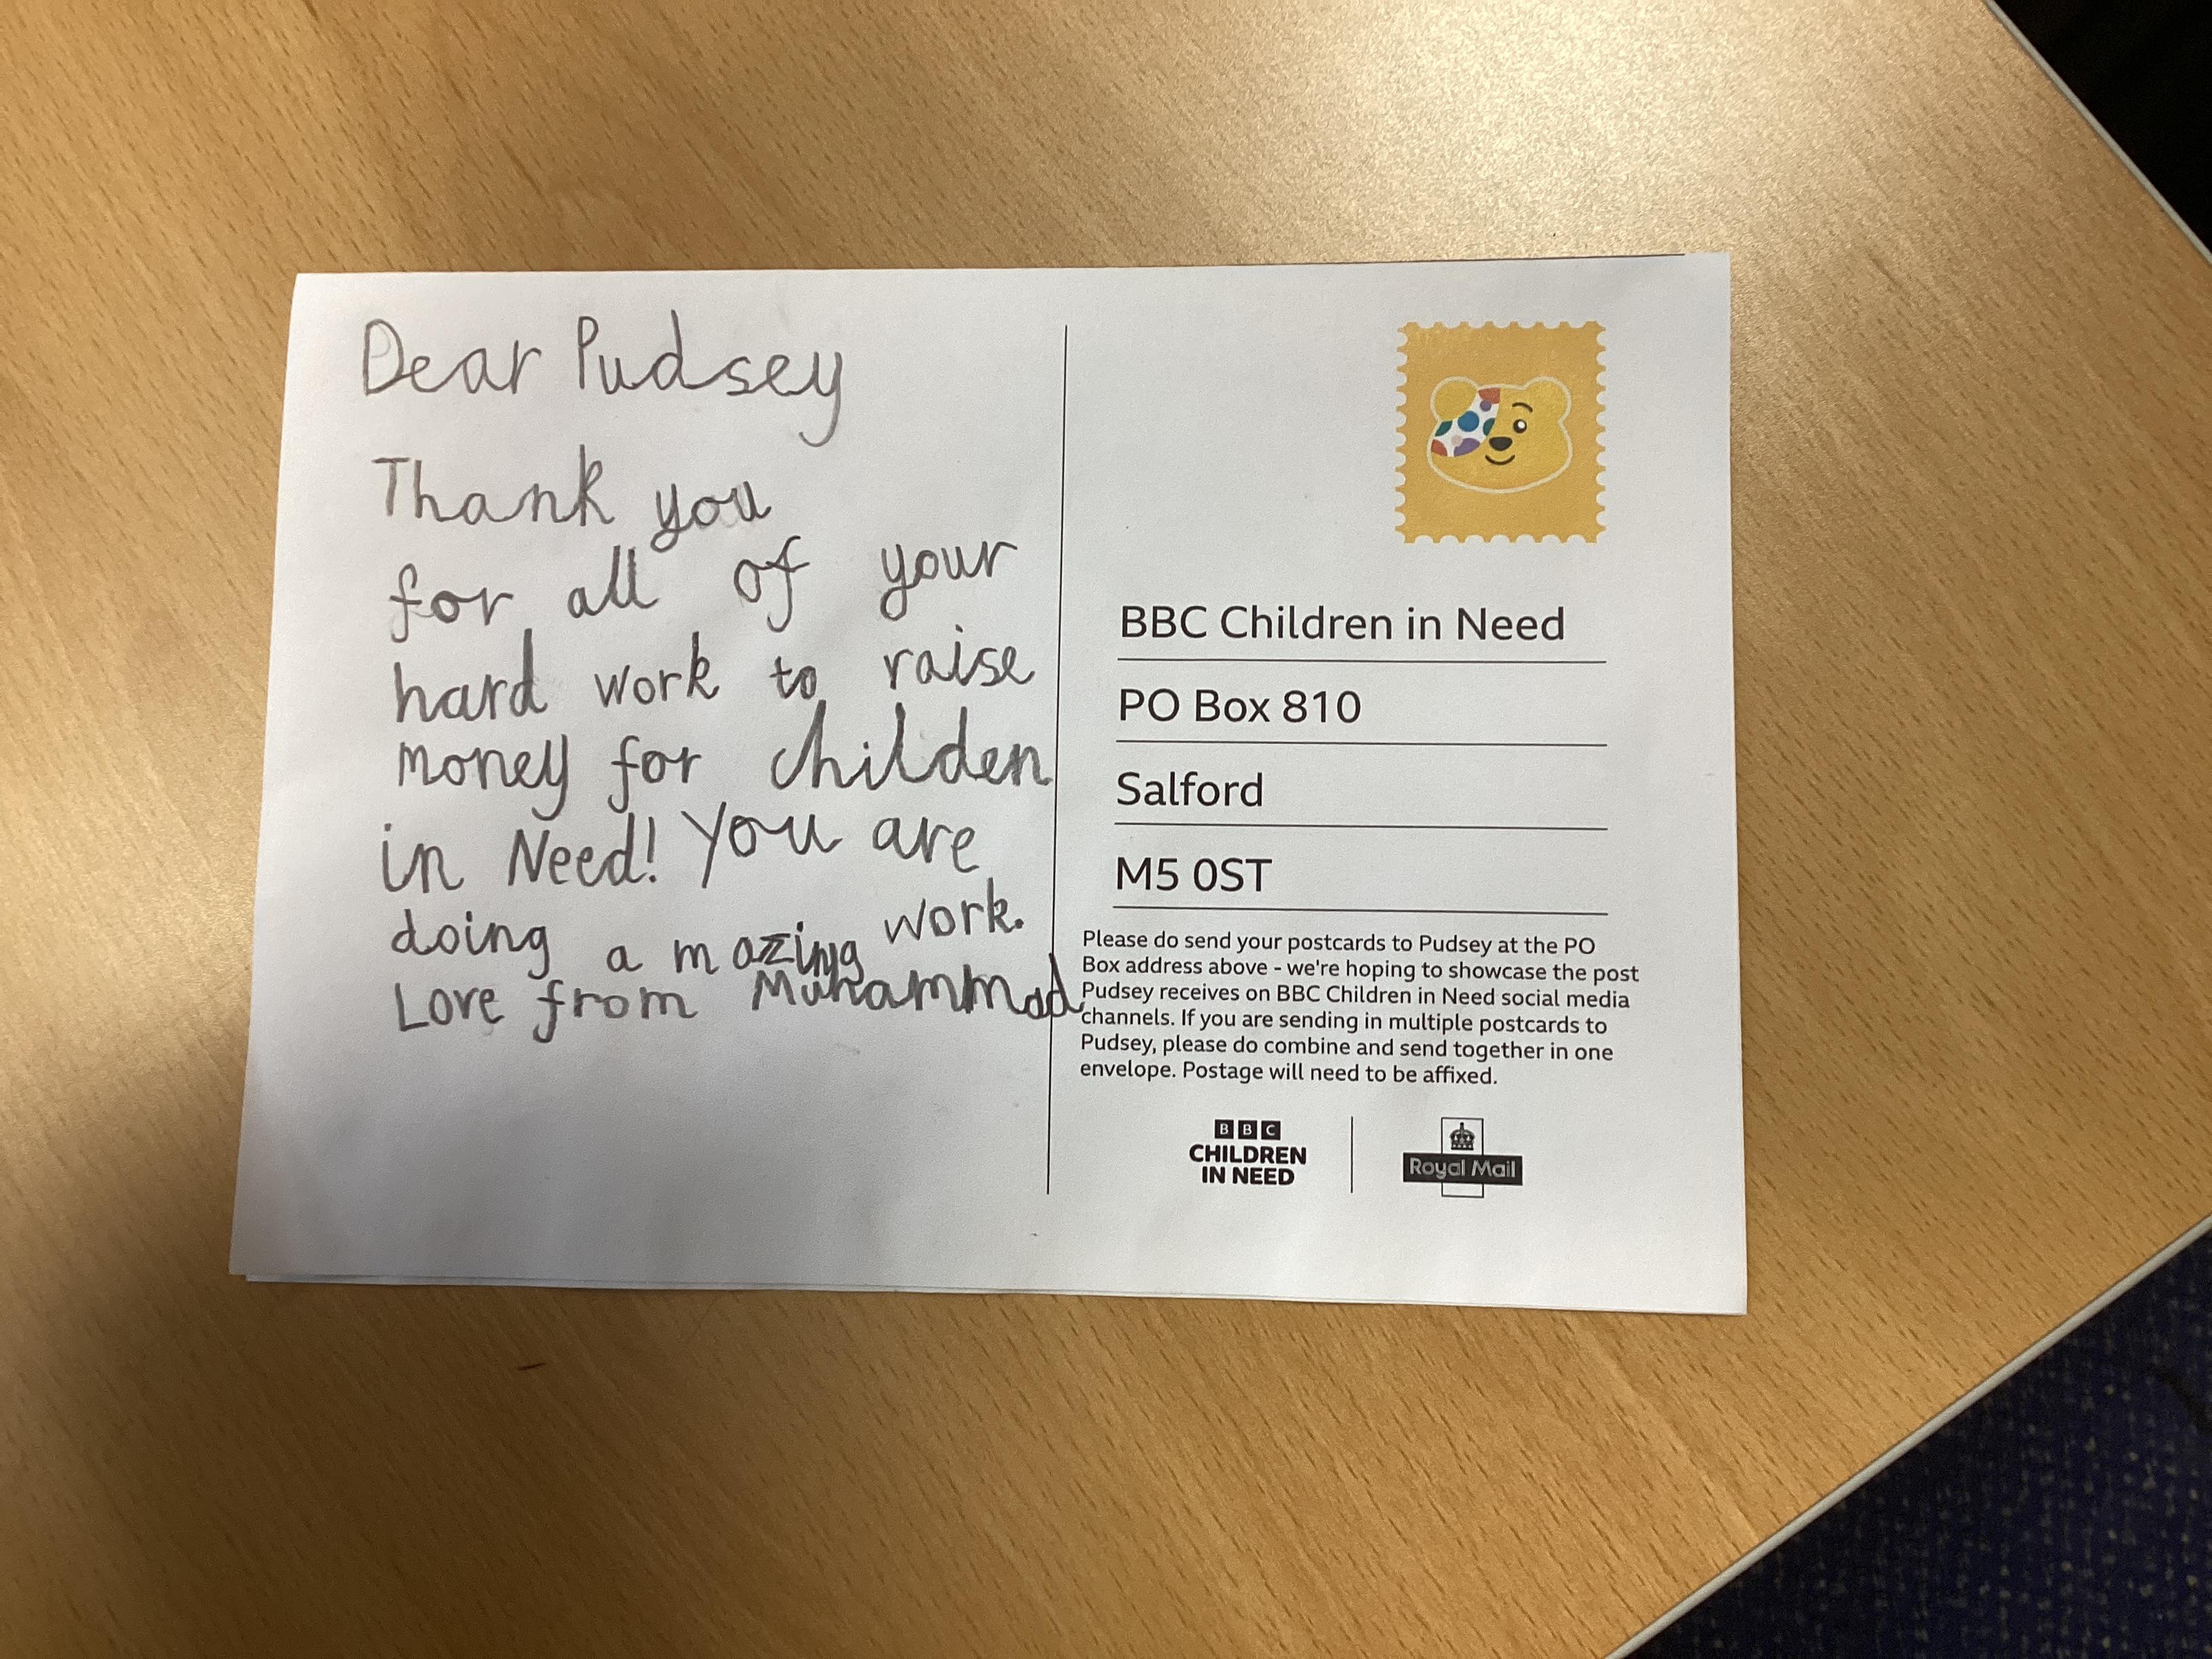 Dear Pudsey
Thank you
for all of your
hard work to raise
money for childen
in Need! You are
doing a mazing work.
Love from Muhammad
BBC Children in Need
PO Box 810
Salford
M5 0ST
Please do send your postcards to Pudsey at the PO
Box address above - we're hoping to showcase the post
Pudsey receives on BBC Children in Need social media
channels. If you are sending in multiple postcards to
Pudsey, please do combine and send together in one
envelope. Postage will need to be affixed.
BBC
CHILDREN
IN NEED
Royal Mail